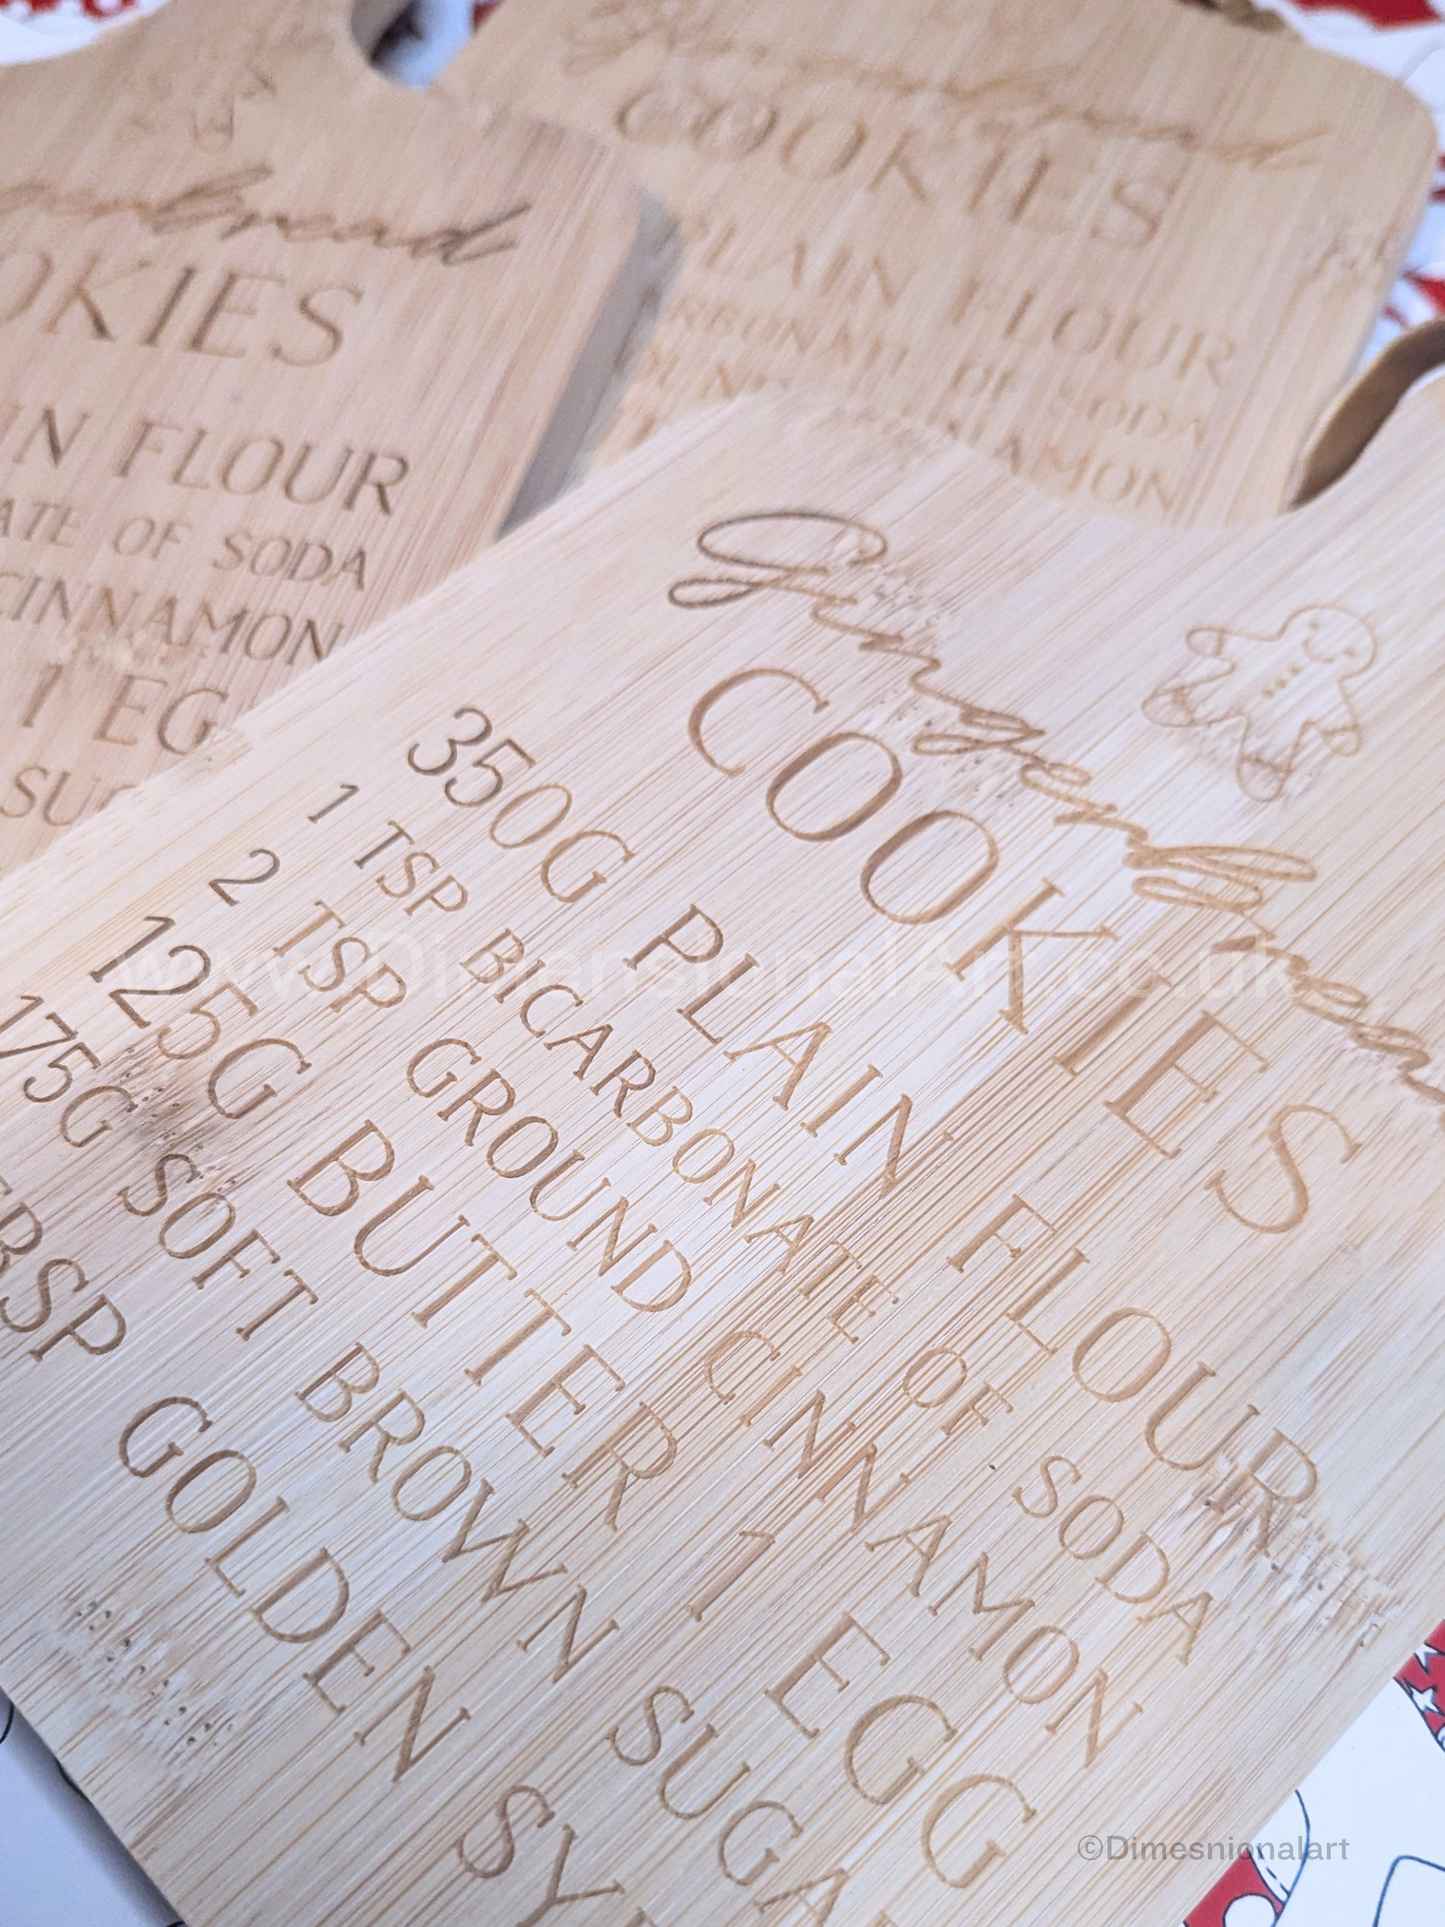 Gingerbread
COOKIES
PLAIN FLOUR
OF SODA
COOKIES
FLOUR
OF SODA
CINNAMON
1 EG
Gingerbread
COOKIES
350G PLAIN FLOUR
1 TSP BICARBONATE OF SODA
2 TSP GROUND CINNAMON
125G BUTTER 1 EGG
175G SOFT BROWN SUGA
BSP GOLDEN SY
www.DimensionalArt.co.uk
©Dimesnionalart